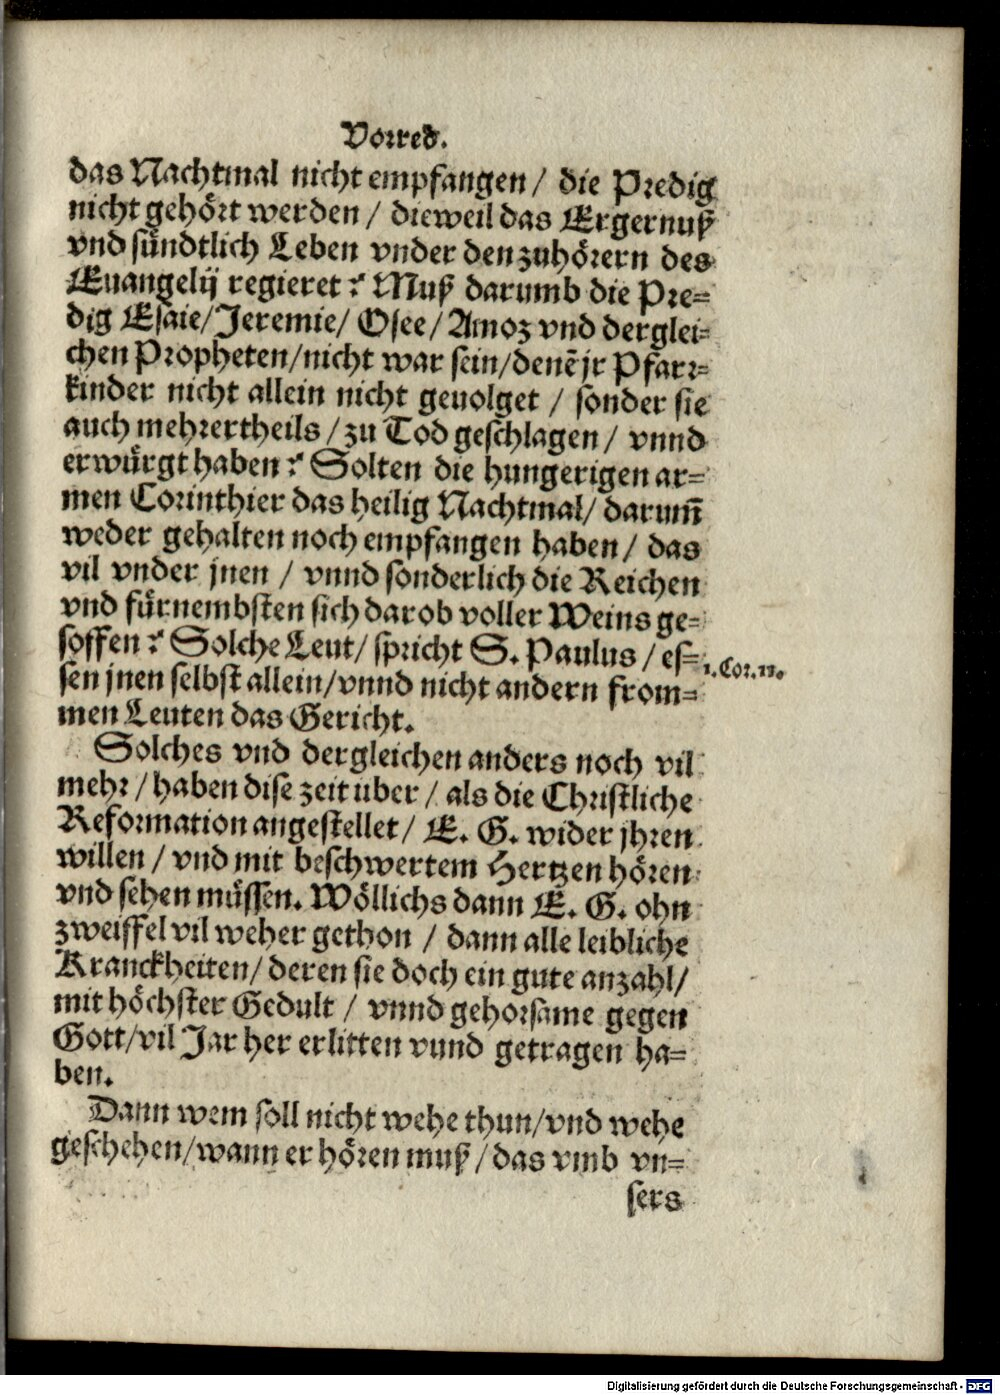 Vorred.
das Nachtmal nicht empfangen / die Predig
nicht gehört werden / dieweil das Ergernuß
vnd sündtlich Leben vnder den zuhörern des
Euangelij regieret? Muß darumb die Pre=
dig Esaie/ Jeremie/ Osee/ Amoz vnd derglei=
chen Propheten/ nicht war sein/ denē jr Pfarr=
kinder nicht allein nicht geuolget / sonder sie
auch mehrertheils / zu Tod geschlagen / vnnd
erwürgt haben? Solten die hungerigen ar=
men Corinthier das heilig Nachtmal/ darum̄
weder gehalten noch empfangen haben / das
vil vnder jnen / vnnd sonderlich die Reichen
vnd fürnembsten sich darob voller Weins ge=
soffen? Solche Leut/ spricht S. Paulus / es=
1. Cor. 11.
sen jnen selbst allein/ vnnd nicht andern from=
men Leuten das Gericht.
Solches vnd dergleichen anders noch vil
mehr / haben dise zeit uber / als die Christliche
Reformation angestellet / E. G. wider jhren
willen / vnd mit beschwertem Hertzen hören
vnd sehen müssen. Wöllichs dann E. G. ohn
zweiffel vil weher gethon / dann alle leibliche
Kranckheiten/ deren sie doch ein gute anzahl/
mit höchster Gedult / vnnd gehorsame gegen
Gott/ vil Jar her erlitten vnnd getragen ha=
ben.
Dann wem soll nicht wehe thun/ vnd wehe
geschehen/ wann er hören muß / das vmb vn=
sers
Digitalisierung gefördert durch die Deutsche Forschungsgemeinschaft - DFG